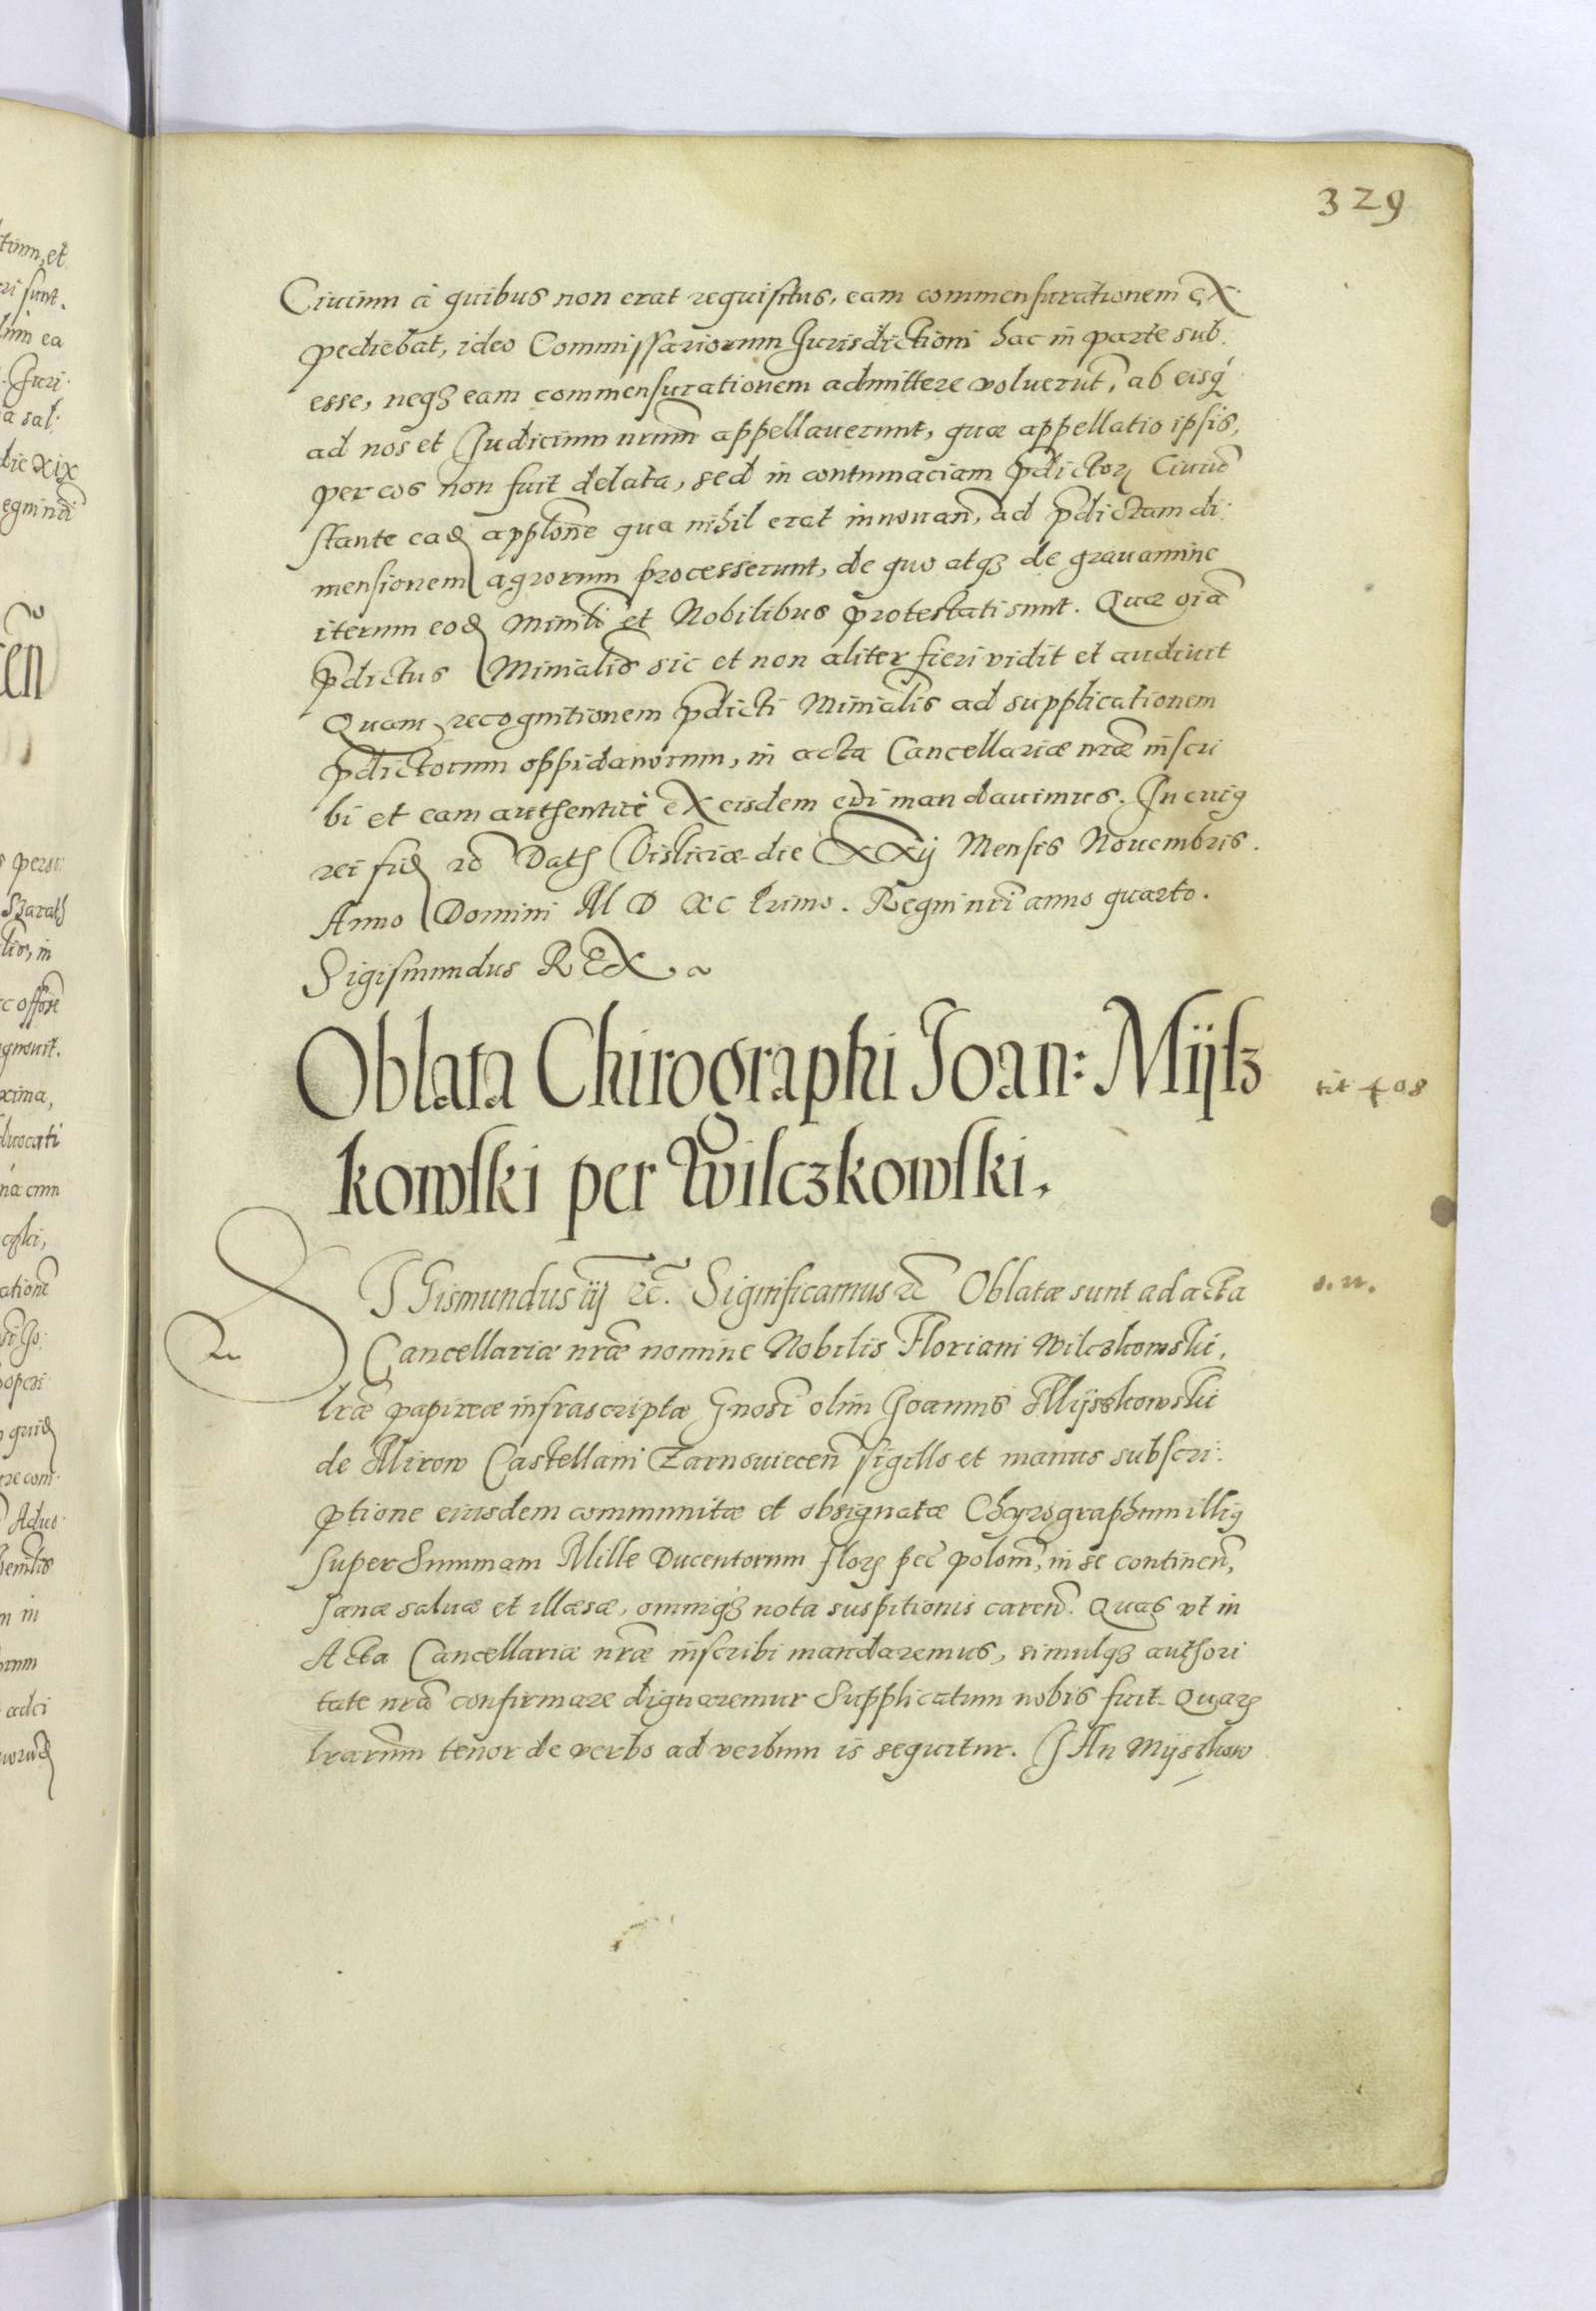 329
Ciuium à quibus non erat requisitus, eam commensurationem ex
pediebat, ideo Commissariorum Jurisdictioni hac in parte sub:
esse, neqȝ eam commensurationem admittere voluerūt, ab eisq́
ad nos et Judicium nrum̄ appellauerunt, quæ appellatio ipsis,
per eos non fuit delata, sed in contumaciam p̄dictoꝝ Ciuiū
stante eaď applōne qua nihil erat innouan̄, ad p̄dictam di:
mensionem agrorum processerunt, de quo atqȝ de grauamine
iterum eoď Minrli et Nobilibus protestati sunt. Quæ oīa
p̄dictus Minialis̄ sic et non aliter fieri vidit et audiuit
Quam recognitionem p̄dicti Ministalis ad supplicationem
p̄dictorum oppidanorum, in acta Cancellariæ nrǣ inscri
bi et eam authenticè ex eisdem edi mandauimus. In cuiꝰ
rei fiď rc̄ Datȝ Visliciæ die XXij Mensis Nouembris.
Anno Domini M D XC primo. Regni nr̄i anno quarto.
Sigismundus REX.
Oblata Chirographi Joan: Mijsz
kowski per Wilczkowski.
tit 408
SIGismundus iij rc̄. Significamus rc̄ Oblatæ sunt ad acta
s. n.
Cancellariæ nrǣ nomine Nobilis Floriani Wilczkowski,
lrǣ papireæ infrascriptæ Gnosi̅ olim Joannis Mijszkowski
de Mirow Castellani Zarnouiecen̄ sigillo et manus subscri:
ptione eiusdem communitæ et obsignatæ Chyrographum illiꝰ
super Summam Mille Ducentorum floꝝ pec̄ polon̄, in se continen̄,
sanæ saluæ et illæsæ, omniqȝ nota suspitionis caren̄. Quas vt in
Acta Cancellariæ nrǣ inscribi mandaremus, simulqȝ authori
tate nrā confirmare dignaremur Supplicatum nobis fuit. Quaꝝ
lrarum̄ tenor de verbo ad verbum is sequitur. JAn Mijszkow